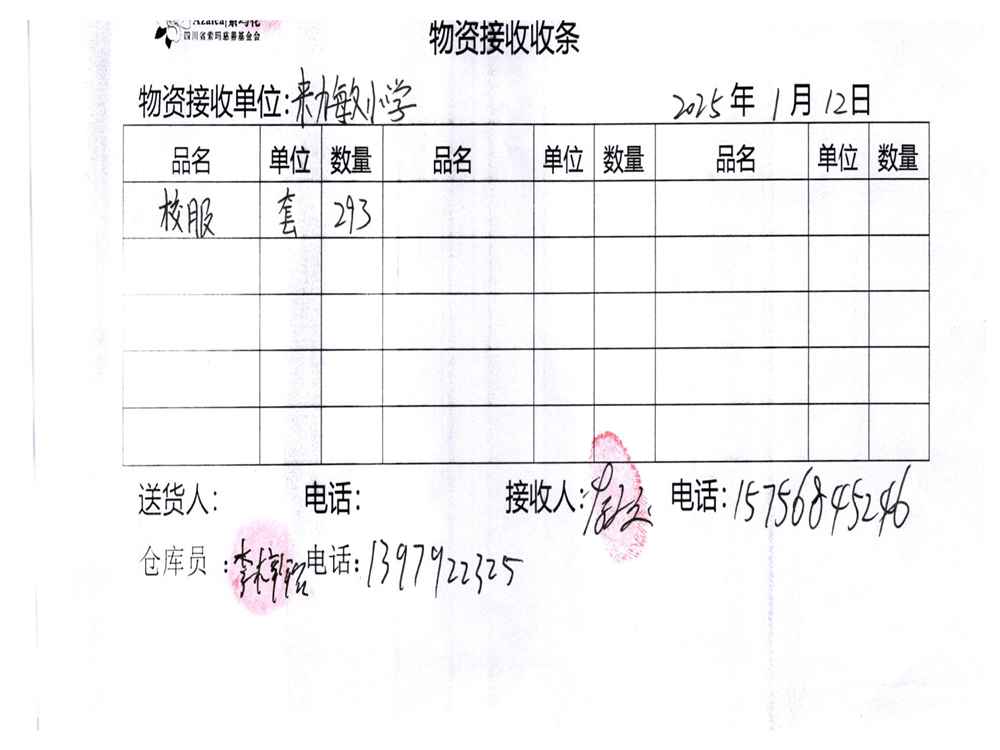 Azalea 索玛花
四川省索玛慈善基金会
物资接收收条
物资接收单位: 小学 2025年1月12日
品名 单位 数量 品名 单位 数量 品名 单位 数量
校服 套 293
送货人: 电话: 接收人: 电话: 15756845246
仓库员: 电话: 1397922325